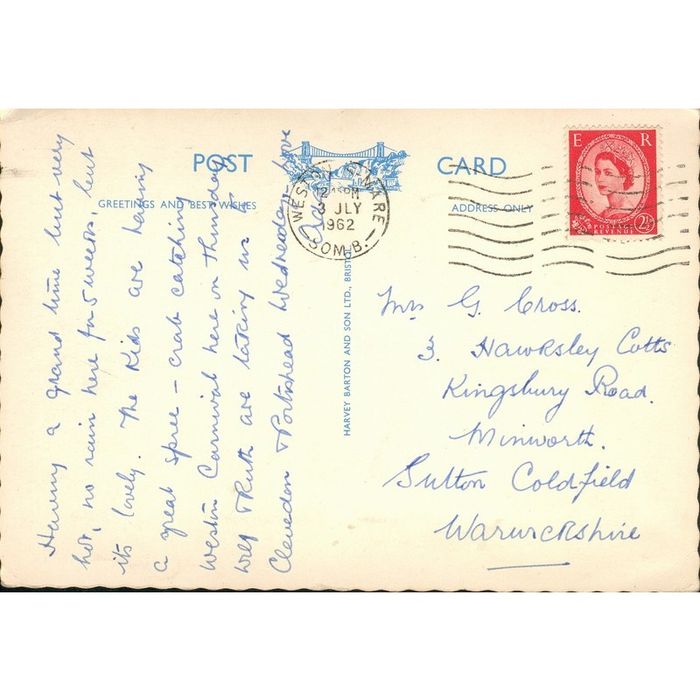 POST CARD
GREETINGS AND BEST WISHES
ADDRESS ONLY
WESTON-S-MARE
2 45 PM
3 JLY
1962
SOM.B.
E R
POSTAGE
REVENUE
2½
HARVEY BARTON AND SON LTD., BRISTOL
Having a grand time but very
hot, no rain here for 5 weeks, but
its lovely. The Kids are having
a great spree – crab catching
Weston Carnival here on Thursday
Wilf & Ruth are taking us to
Clevedon & Portishead Wednesday – love
Mrs G. Cross.
3. Hawksley Cotts
Kingsbury Road.
Minworth.
Sutton Coldfield
Warwickshire